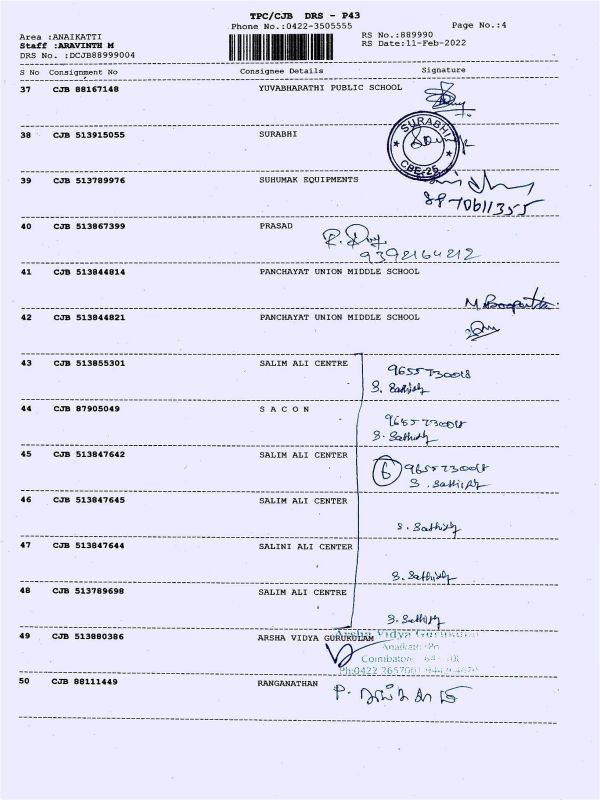 TPC/CJB DRS - P43
Phone No.:0422-3505555
Page No.:4
Area :ANAIKATTI
Staff :ARAVINTH M
DRS No. :DCJB88999004
RS No.:889990
RS Date:11-Feb-2022
S No Consignment No Consignee Details Signature
37 CJB 88167148 YUVABHARATHI PUBLIC SCHOOL
38 CJB 513915055 SURABHI
SURABHI
CBE-25
39 CJB 513789976 SUHUMAK EQUIPMENTS
8870611355
40 CJB 513867399 PRASAD
9392164212
41 CJB 513844814 PANCHAYAT UNION MIDDLE SCHOOL
42 CJB 513844821 PANCHAYAT UNION MIDDLE SCHOOL
43 CJB 513855301 SALIM ALI CENTRE
9655730018
S. Sathish
44 CJB 87905049 S A C O N
9655730018
S. Sathish
45 CJB 513847642 SALIM ALI CENTER
6 9655730018
S. Sathish
46 CJB 513847645 SALIM ALI CENTER
S. Sathish
47 CJB 513847644 SALINI ALI CENTER
S. Sathish
48 CJB 513789698 SALIM ALI CENTRE
S. Sathish
49 CJB 513880386 ARSHA VIDYA GURUKULAM
Arsha Vidya Gurukulam
Coimbatore
50 CJB 88111449 RANGANATHAN